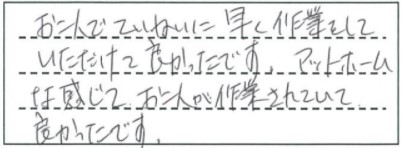 お二人でていねいに早く作業をして
いただけて良かったです。アットホーム
な感じで、お二人が作業されていて
良かったです。